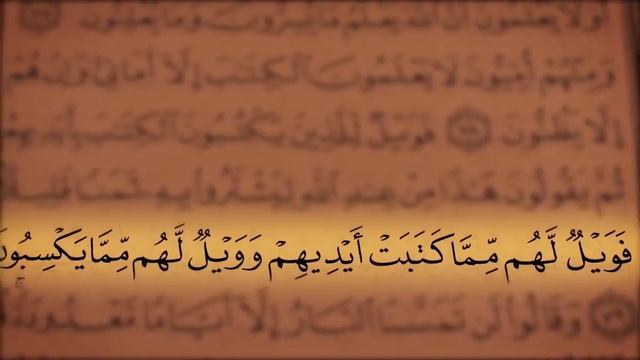 أولا يعلمون أن الله يعلم ما يسرون وما يعلنون
ومنهم أميون لا يعلمون الكتب إلا أماني وإن هم
إلا يظنون فويل للذين يكتبون الكتب بأيديهم
ثم يقولون هذا من عند الله ليشتروا به ثمنا قليلا
فَوَيْلٌ لَّهُم مِّمَّا كَتَبَتْ أَيْدِيهِمْ وَوَيْلٌ لَّهُم مِّمَّا يَكْسِبُونَ
وقالوا لن تمسنا النار إلا أياما معدودة